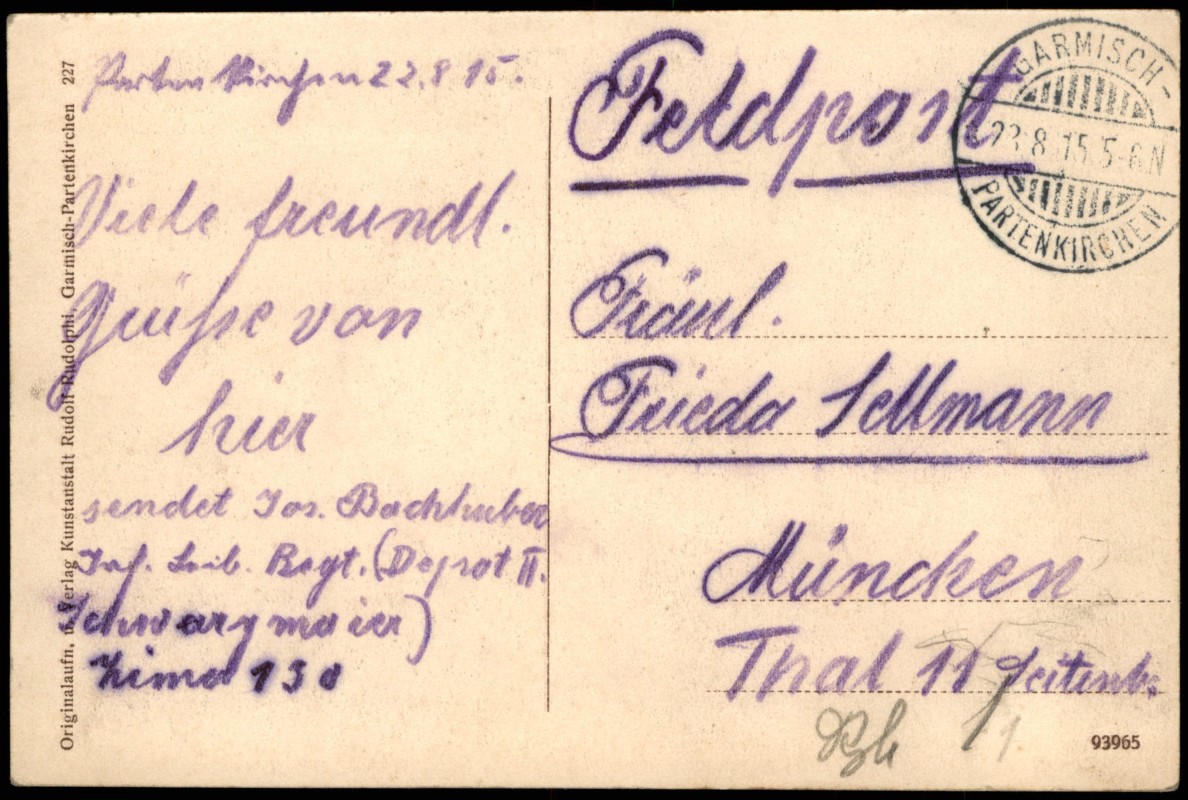 Partenkirchen 22.8.15.
Viele freundl.
Grüße von
hier
sendet Jos. Bachhuber
Inf. Leib. Regt. (Depot II.
Schwarzmaier)
Originalaufn. u. Verlag Kunstanstalt Rudolf Rudolphi, Garmisch-Partenkirchen 227
Feldpost
GARMISCH-
23.8.15.5-6.N
PARTENKIRCHEN
Fräul.
Frieda Sellmann
München
Thal 11 Seitenb.
93965